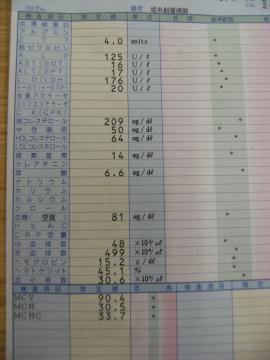 検査項目 測定値 単位 低値 基準範囲
血清総蛋白
アルブミン
ZTT 4.0 units
総ビリルビン
ALP 125 U/ℓ
AST(GOT) 16 U/ℓ
ALT(GPT) 17 U/ℓ
LD(LDH) 176 U/ℓ
γ-GT(γ-GTP) 20 U/ℓ
血清アミラーゼ
コリンエステラーゼ
CK(CPK)
総コレステロール 209 mg/dℓ
中性脂肪 50 mg/dℓ
HDLコレステロール 64 mg/dℓ
LDLコレステロール
尿素窒素 14 mg/dℓ
クレアチニン
尿酸 6.6 mg/dℓ
ナトリウム
カリウム
カルシウム
クロール
血糖(空腹) 81 mg/dℓ
HbA1C
CRP定量
白血球数 48 ×10²/μℓ
赤血球数 499 ×10⁴/μℓ
ヘモグロビン 15.2 g/dℓ
ヘマトクリット 45.1 %
血小板数 30.6 ×10⁴/μℓ
検査項目 測定値 低 高 検査項目 測定値 検査項目
MCV 90.4 *
MCH 30.5 *
MCHC 33.7 *